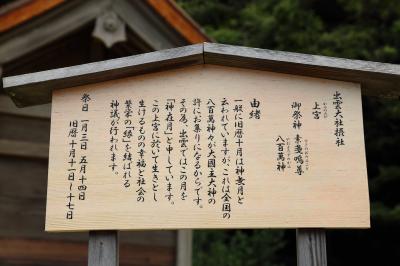 出雲大社摂社
上宮
かみのみや
御祭神 素戔嗚尊
八百萬神
由緒
一般に旧暦十月は神無月と
云われていますが、これは全国の
八百萬神々が大國主大神の
許にお集りになるからです。
その為、出雲ではこの月を
「神在月」と申しています。
この上宮に於いて生きとし
生けるもの幸福と社会の
繁栄の「縁」を結ばれる
神議が行われます。
祭日 一月三日 五月十四日
旧暦 十月十一日〜十七日